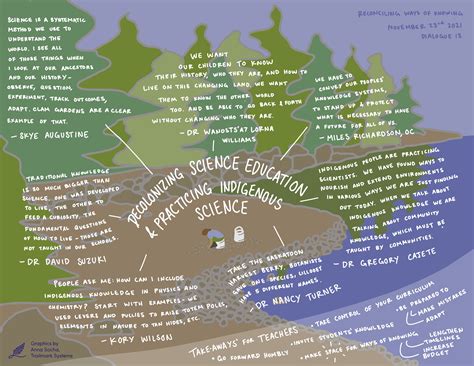 RECONCILING WAYS OF KNOWING
NOVEMBER 23RD 2021
DIALOGUE 13
SCIENCE IS A SYSTEMATIC
METHOD WE USE TO
UNDERSTAND THE
WORLD. I SEE ALL
OF THOSE THINGS WHEN
I LOOK AT OUR ANCESTORS
AND OUR HISTORY -
OBSERVE, QUESTION,
EXPERIMENT, TRACK OUTCOMES,
ADAPT. CLAM GARDENS ARE A CLEAR
EXAMPLE OF THAT.
- SKYE AUGUSTINE
WE WANT
OUR CHILDREN TO KNOW
THEIR HISTORY, WHO THEY ARE, AND HOW TO
LIVE ON THIS CHANGING LAND. WE WANT
THEM TO KNOW THE OTHER WORLD
TOO. AND BE ABLE TO GO BACK & FORTH
WITHOUT CHANGING WHO THEY ARE.
- DR WANOSTS'A7 LORNA
WILLIAMS
WE HAVE TO
CONVEY OUR PEOPLES'
KNOWLEDGE SYSTEMS,
TO STAND UP & PROTECT
WHAT IS NECESSARY TO HAVE
A FUTURE FOR ALL OF US.
- MILES RICHARDSON, OC
TRADITIONAL KNOWLEDGE
IS SO MUCH BIGGER THAN
SCIENCE. ONE WAS DEVELOPED
TO LIVE, THE OTHER TO
FEED A CURIOSITY. THE
FUNDAMENTAL QUESTIONS
OF HOW TO LIVE - THOSE ARE
NOT TAUGHT IN OUR SCHOOLS.
- DR DAVID SUZUKI
DECOLONIZING SCIENCE EDUCATION
& PRACTICING INDIGENOUS
SCIENCE
INDIGENOUS PEOPLE ARE PRACTICING
SCIENTISTS. WE HAVE FOUND WAYS TO
NOURISH AND EXTEND ENVIRONMENTS
IN VARIOUS WAYS WE ARE JUST FINDING
OUT TODAY. WHEN WE TALK ABOUT
INDIGENOUS KNOWLEDGE WE ARE
TALKING ABOUT COMMUNITY
KNOWLEDGE, WHICH MUST BE
TAUGHT BY COMMUNITIES.
- DR GREGORY CAJETE
PEOPLE ASK ME: HOW CAN I INCLUDE
INDIGENOUS KNOWLEDGE IN PHYSICS AND
CHEMISTRY? START WITH EXAMPLES - WE
USED LEVERS AND PULLIES TO RAISE TOTEM POLES,
ELEMENTS IN NATURE TO TAN HIDES, ETC.
- KORY WILSON
TAKE THE SASKATOON
HARVEST BERRY. BOTANISTS
GAVE ONE SPECIES; LILLOOET
HAVE 5 DIFFERENT NAMES.
- DR NANCY TURNER
TAKEAWAYS FOR TEACHERS
• GO FORWARD HUMBLY
• INVITE STUDENTS' KNOWLEDGE
• TAKE CONTROL OF YOUR CURRICULUM
• MAKE SPACE FOR WAYS OF KNOWING
• BE PREPARED TO
MAKE MISTAKES
ADAPT
LENGTHEN
TIMELINES
INCREASE
BUDGET
Graphics by
Anna Socha,
Toolmark Systems